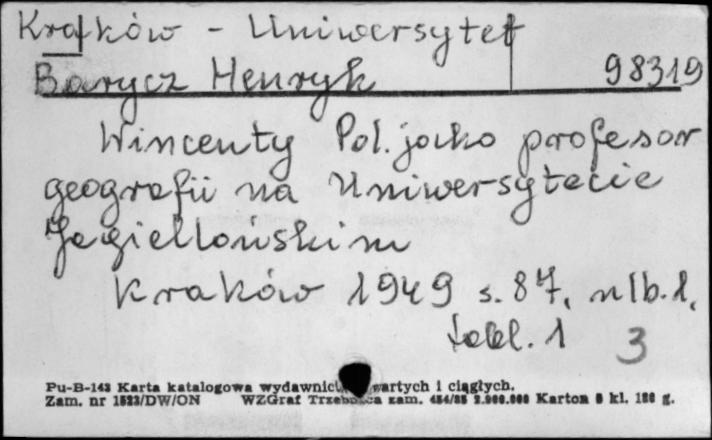 Kraków - Uniwersytet
Barycz Henryk 98319
Wincenty Pol. jako profesor
geografii na Uniwersytecie
Jagiellońskim
Kraków 1949 s. 87, nlb. 1,
tabl. 1 3
Pu-B-143 Karta katalogowa wydawnictw zwartych i ciągłych.
Zam. nr 1523/DW/ON WZGraf Trzebosza zam. Karton kl. g.